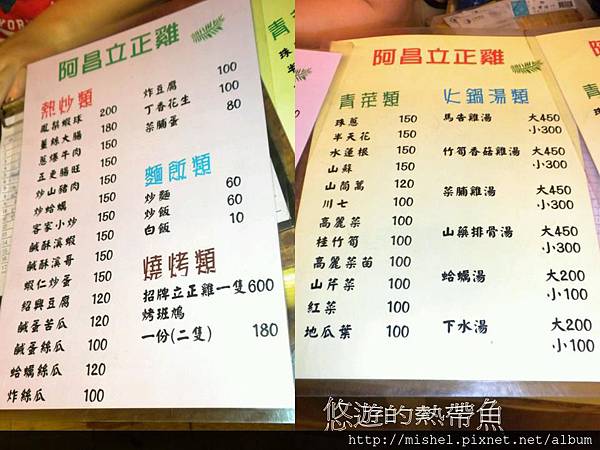 阿昌立正雞
熱炒類
鳳梨蝦球 200
薑絲大腸 180
蔥爆牛肉 150
五更腸旺 150
炒山豬肉 150
炒蛤蠣 150
客家小炒 150
鹹酥溪蝦 150
鹹酥溪哥 150
蝦仁炒蛋 150
紹興豆腐 120
鹹蛋苦瓜 120
鹹蛋絲瓜 100
蛤蠣絲瓜 120
炸絲瓜 100
炸豆腐 100
丁香花生 100
菜脯蛋 80
麵飯類
炒麵 60
炒飯 60
白飯 10
燒烤類
招牌立正雞一隻600
烤班鳩
一份(二隻) 180
阿昌立正雞
青菜類
珠蔥 150
半天花 150
水蓮根 150
山蘇 150
山茼萵 120
川七 100
高麗菜 100
桂竹筍 100
高麗菜苗 100
山芹菜 100
紅菜 100
地瓜葉 100
火鍋湯類
馬告雞湯 大450
小300
竹筍香菇雞湯 大450
小300
菜脯雞湯 大450
小300
山藥排骨湯 大450
小300
蛤蠣湯 大200
小100
下水湯 大200
小100
悠遊的熱帶魚
http://mishel.pixnet.net/album